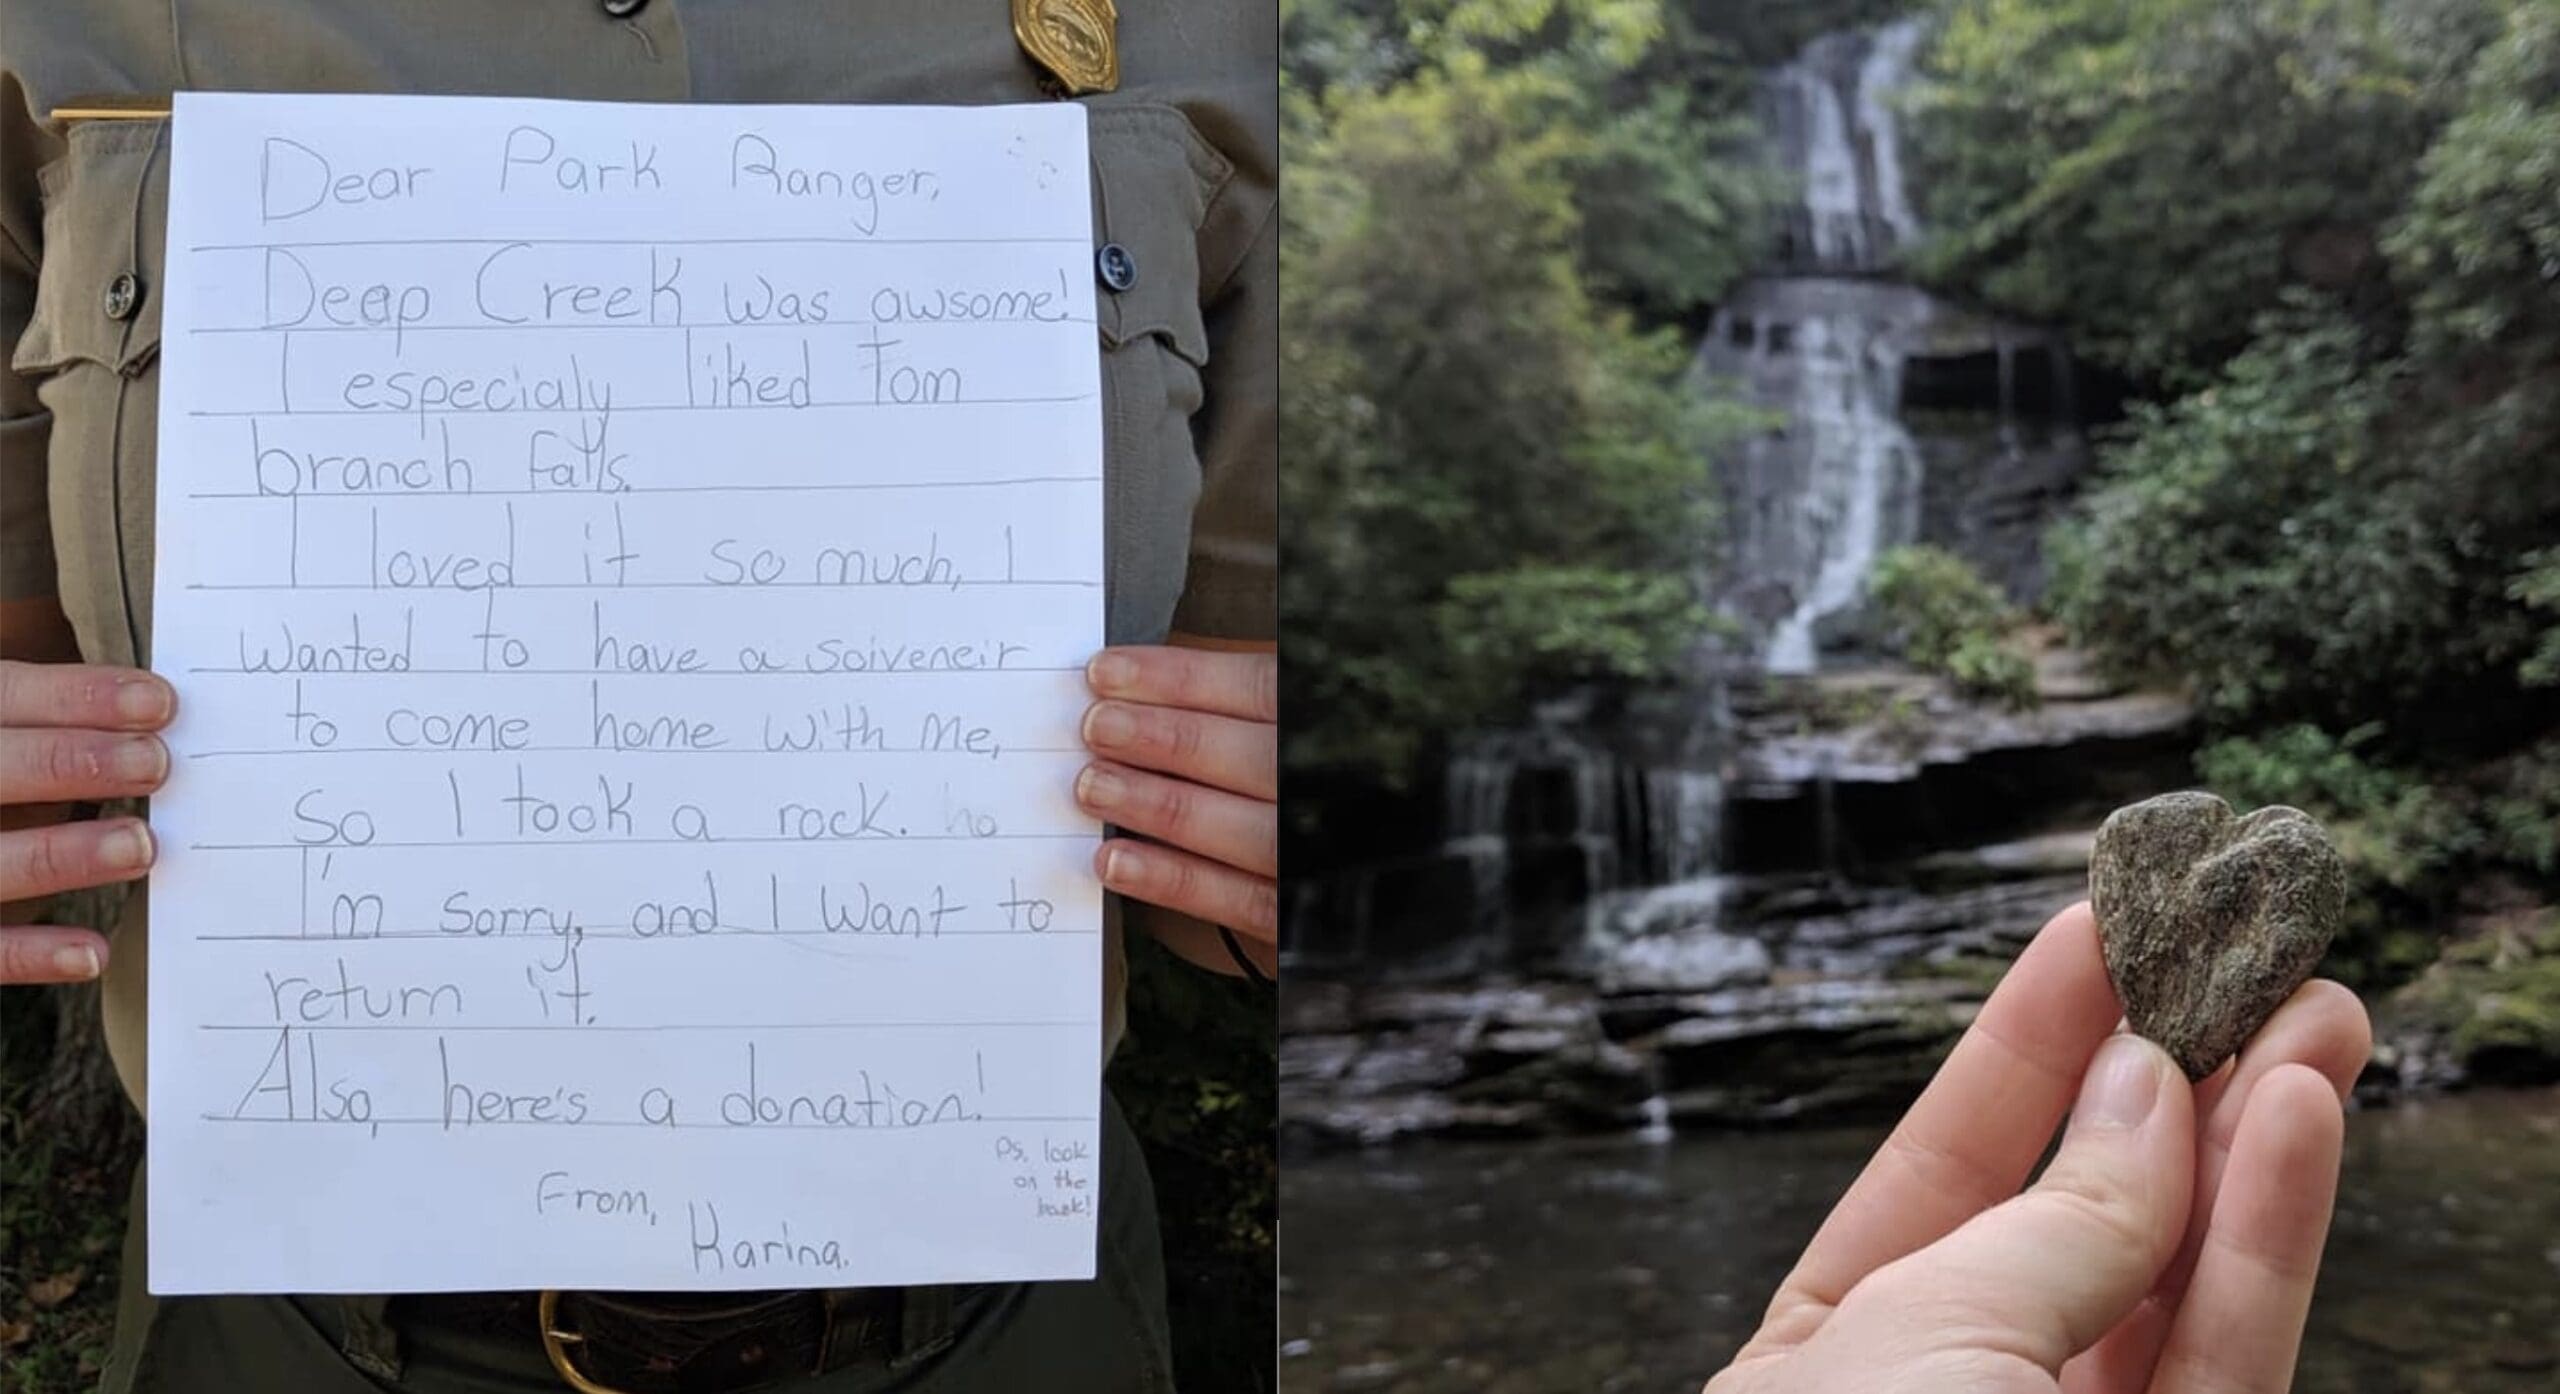 Dear Park Ranger,
Deep Creek was awsome!
I especialy liked Tom
branch falls.
I loved it so much, I
wanted to have a soiveneir
to come home with me,
so I took a rock. ho
I'm sorry, and I want to
return it.
Also, here's a donation!
Ps. look
on the
back!
From,
Karina.